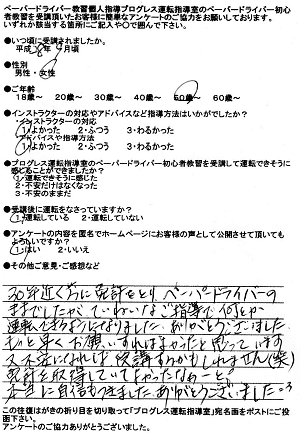 ペーパードライバー教習個人指導プログレス運転指導室のペーパードライバー初心
者教習を受講頂いたお客様に簡単なアンケートのご協力をお願いしております。
いずれか該当する箇所にご記入や〇で囲んで下さい。
●いつ頃に受講されましたか。
平成 年 9月頃
●性別
男性・女性
●ご年齢
18歳~ 20歳~ 30歳~ 40歳~ 50歳~ 60歳~
●インストラクターの対応やアドバイスなど指導方法はいかがでしたか?
・インストラクターの対応
1よかった 2・ふつう 3・わるかった
アドバイスや指導方法
1よかった 2・ふつう 3・わるかった
●プログレス運転指導室のペーパードライバー初心者教習を受講して運転できそうに
感じることができましたか?
1運転できそうに感じた
2・不安だけはなくなった
3・不安のままだ
●受講後に運転をなさっていますか?
1運転している 2・運転していない
●アンケートの内容を匿名でホームページにお客様の声として公開させて頂いても
よろしいですか?
1はい 2・いいえ
●その他ご意見・ご感想など
30年近く前に免許をとり、ペーパードライバーの
ままでしたが、ていねいなご指導で何とか
運転できるようになりました。ありがとうございました。
もっと早くお願いすればよかったと思っています
又不安になれば受講するかもしれません(笑)
免許を取得していてよかったなぁーと。
本当に自信もつきました。ありがとうございました
この往復はがきの折り目を切り取って「プログレス運転指導室」宛名面をポストにご投
函下さい。
アンケートのご協力ありがとうございました。